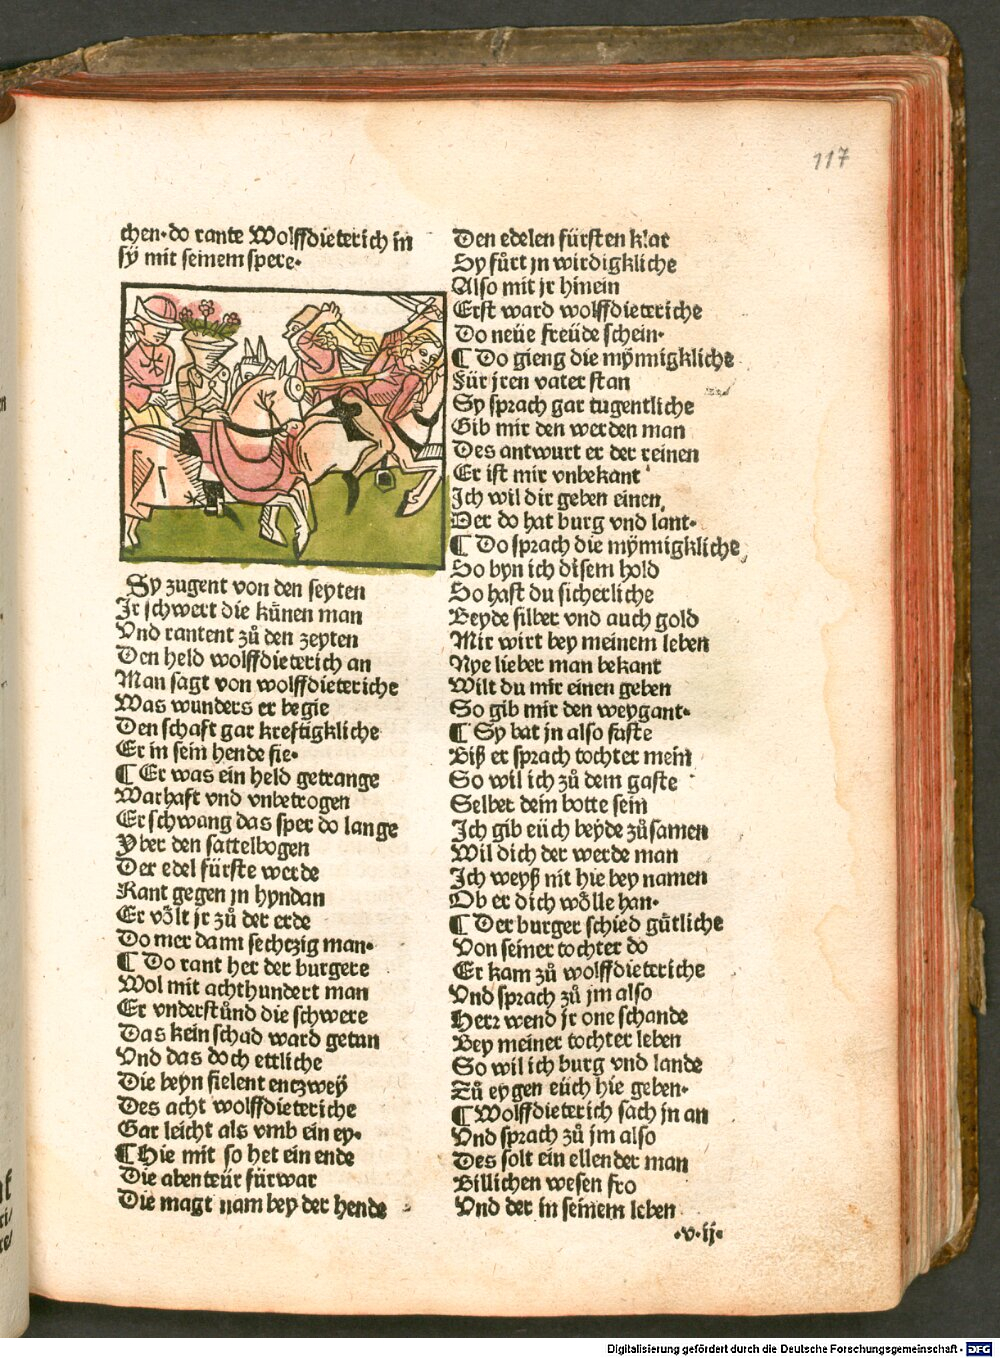 117
chen·do rante Wolffdieterich in
sÿ mit seinem spere·
Sy zugent von den seyten
Jr schwert die kůnen man
Vnd rantent zů den zeyten
Den held wolffdieterich an
Man sagt von wolffdieteriche
Was wunders er begie
Den schaft gar kreftigkliche
Er in sein hende fie·
¶ Er was ein held getrange
Warhaft vnd vnbetrogen
Er schwang das sper do lange
Yber den sattelbogen
Der edel fürste werde
Rant gegen jn hyndan
Er vӧlt jr zů der erde
Do mer dann sechczig man·
¶ Do rant her der burgere
Wol mit achthundert man
Er vnderstůnd die schwere
Das kein schad ward getan
Vnd das doch ettliche
Die beyn fielent entzweÿ
Des acht wolffdieteriche
Gar leicht als vmb ein ey·
¶ Hie mit so het ein ende
Die abenteür fürwar
Die magt nam bey der hende
Den edelen fürsten klar
Sy fůrt jn wirdigkliche
Also mit jr hinein
Erst ward wolffdieteriche
Do neüe freüde schein·
¶ Do gieng die mÿnnigkliche
Für jren vater stan
Sy sprach gar tugentliche
Gib mir den werden man
Des antwurt er der reinen
Er ist mir vnbekant
Ich wil dir geben einen
Der do hat burg vnd lant·
¶ Do sprach die mÿnnigkliche
So byn ich disem hold
So hast du sicherliche
Beyde silber vnd auch gold
Mir wirt bey meinem leben
Nye lieber man bekant
Wilt du mir einen geben
So gib mir den weygant·
¶ Sy bat jn also faste
Biß er sprach tochter mein
So wil ich zů dem gaste
Selber dein botte sein
Ich gib eüch beyde zůsamen
Wil dich der werde man
Ich weyß nit hie bey namen
Ob er dich wӧlle han·
¶ Der burger schied gůtliche
Von seiner tochter do
Er kam zů wolffdieteriche
Vnd sprach zů jm also
Herr wend jr one schande
Bey meiner tochter leben
So wil ich burg vnd lande
Zů eygen eüch hie geben·
¶ Wolffdieterich sach jn an
Vnd sprach zů jm also
Des solt ein ellender man
Billichen wesen fro
Vnd der in seinem leben
·v·ij·
Digitalisierung gefördert durch die Deutsche Forschungsgemeinschaft - DFG